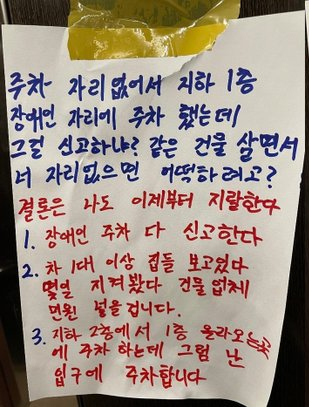 주차 자리없어서 지하 1층
장애인 자리에 주차 했는데
그걸 신고하냐? 같은 건물 살면서
너 자리없으면 어떡하려고?
결론은 나도 이제부터 지랄한다
1. 장애인 주차 다 신고한다
2. 차 1대 이상 집들 보고있다
몇일 지켜봤다 건물업체
민원 넣을겁니다.
3. 지하 2층에서 1층 올라오는곳
에 주차하는데 그럼 난
입구에 주차합니다